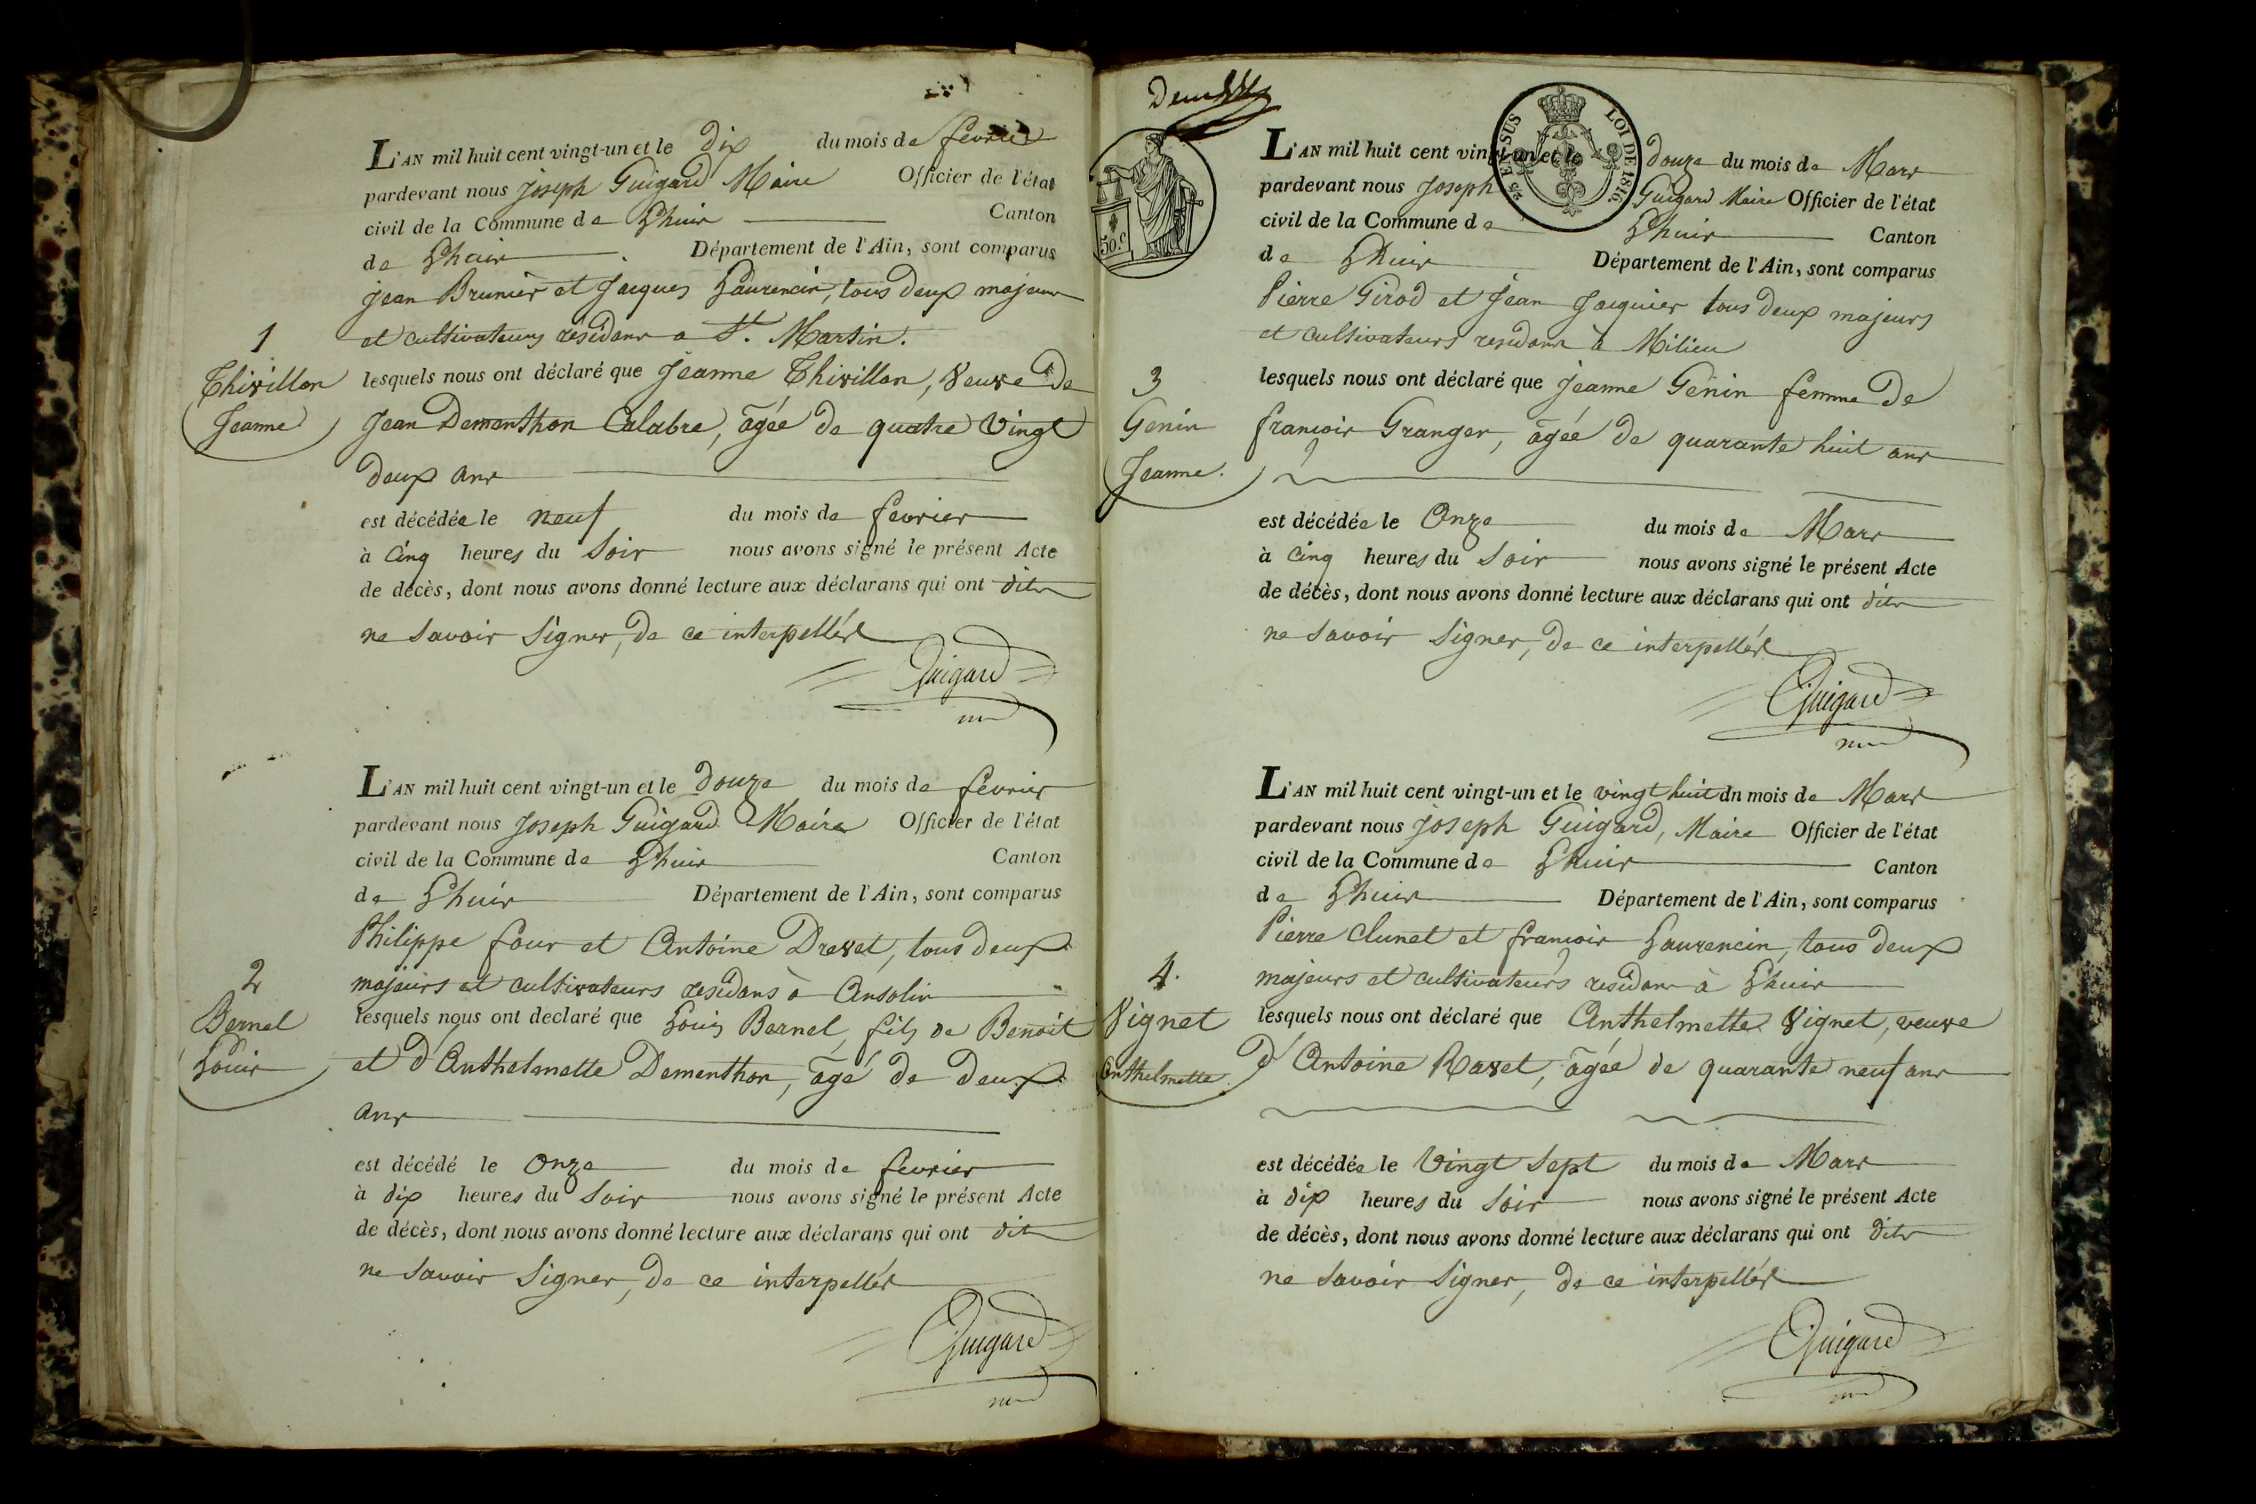 L'AN mil huit cent vingt-un et le dix du mois de fevrier
pardevant nous Joseph Guigard Maire Officier de l'état
civil de la Commune de Lhuis Canton
de Lhuis Département de l'Ain, sont comparus
jean Brunier et Jacques Laurencin, tous deux majeurs
et cultivateurs résidans a St. Martin.
1
Thivillon
Jeanne
lesquels nous ont déclaré que Jeanne Thivillon, veuve de
Jean Dementhon Calabre, âgée de quatre vingt
deux ans
est décédée le neuf du mois de fevrier
à cinq heures du soir nous avons signé le présent Acte
de décès, dont nous avons donné lecture aux déclarans qui ont dits
ne savoir signer, de ce interpellés
Guigard
L'AN mil huit cent vingt-un et le douze du mois de fevrier
pardevant nous Joseph Guigard Maire Officier de l'état
civil de la Commune de Lhuis Canton
de Lhuis Département de l'Ain, sont comparus
Philippe four et Antoine Drevet, tous deux
majeurs et cultivateurs residans à Ansolin
2
Bernel
Louis
lesquels nous ont declaré que Louis Bernel, fils de Benoît
et d'Anthelmette Dementhon, âgé de deux
ans
est décédé le onze du mois de fevrier
à dix heures du soir nous avons signé le présent Acte
de décès, dont nous avons donné lecture aux déclarans qui ont dits
ne savoir signer, de ce interpellés
Guigard
50.c
25 EN SUS LOI DE 1816
L'AN mil huit cent vingt-un et le douze du mois de Mars
pardevant nous Joseph Guigard Maire Officier de l'état
civil de la Commune de Lhuis Canton
de Lhuis Département de l'Ain, sont comparus
Pierre Girod et Jean Jacquier tous deux majeurs
et cultivateurs residans à Milieu
3
Genin
Jeanne.
lesquels nous ont déclaré que Jeanne Genin femme de
francois Granger, âgée de quarante huit ans
est décédée le Onze du mois de Mars
à cinq heures du soir nous avons signé le présent Acte
de décès, dont nous avons donné lecture aux déclarans qui ont dits
ne savoir signer, de ce interpellés
Guigard
L'AN mil huit cent vingt-un et le vingt huit dn mois de Mars
pardevant nous Joseph Guigard, Maire Officier de l'état
civil de la Commune de Lhuis Canton
de Lhuis Département de l'Ain, sont comparus
Pierre Clunet et francois Laurencin, tous deux
majeurs et cultivateurs residans à Lhuis
4.
Vignet
Anthelmette
lesquels nous ont déclaré que Anthelmette Vignet, veuve
d'Antoine Ravet, âgée de quarante neuf ans
est décédée le vingt sept du mois de Mars
à dix heures du soir nous avons signé le présent Acte
de décès, dont nous avons donné lecture aux déclarans qui ont dits
ne savoir signer, de ce interpellés
Guigard